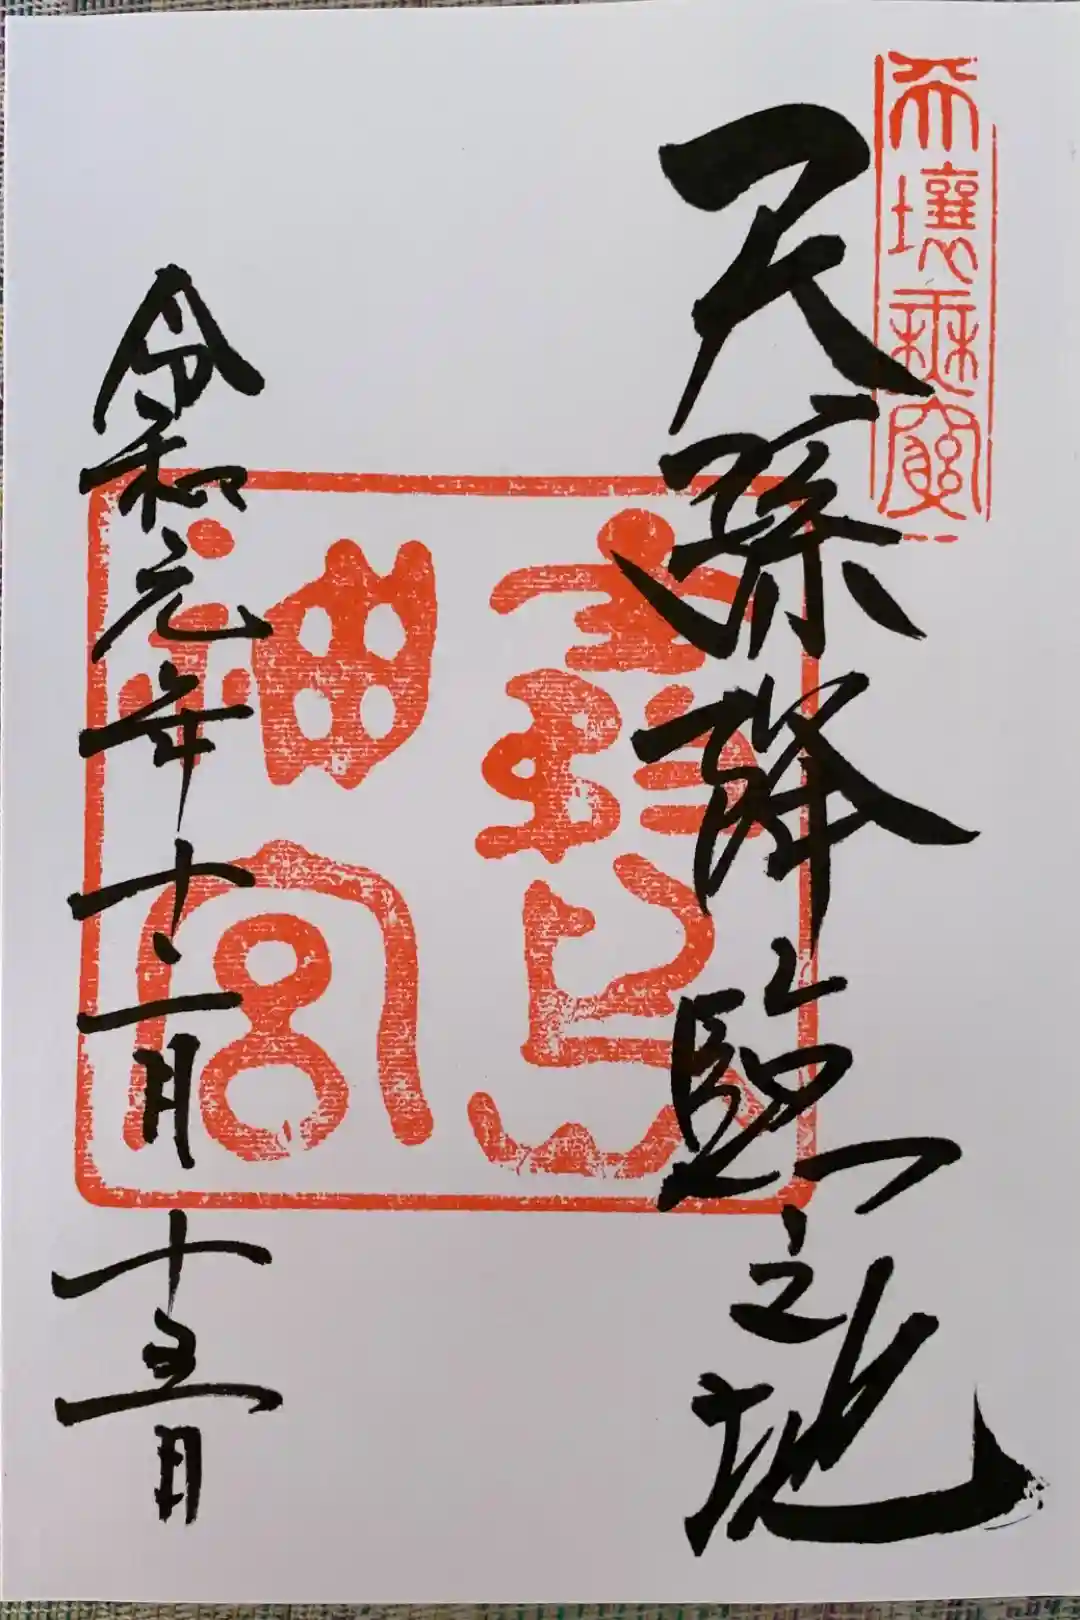 天壤無窮
天孫降臨之地
霧島
神宮
令和元年十二月十五日